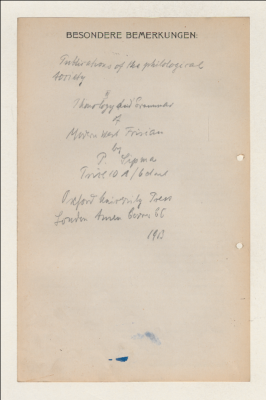 BESONDERE BEMERKUNGEN:
Publications of the philological
Society
Phonology and Grammar
of
Modern West Frisian
by
P. Sipma
Price 10
Oxford University Press
London Amen Corner EC
1913